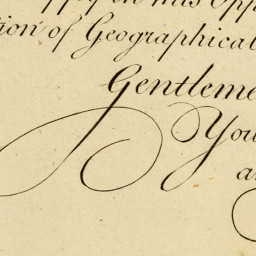 in this Opp
tion of Geographical
Gentleme
You
a